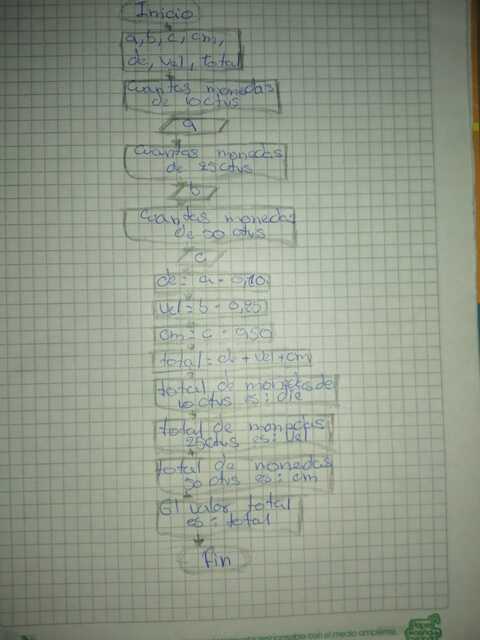 Inicio
a, b, c, cm,
de, vel, total
cuantas monedas
de 10 ctvs
a
cuantas monedas
de 25 ctvs
b
cuantas monedas
de 50 ctvs
c
de = a - 0,10
vel = b - 0,25
cm = c - 0,50
total = de + vel + cm
total de monedas de
10 ctvs es: de
total de monedas
25 ctvs es: vel
total de monedas
50 ctvs es: cm
El valor total
es: total
Fin
con el medio ambiente.